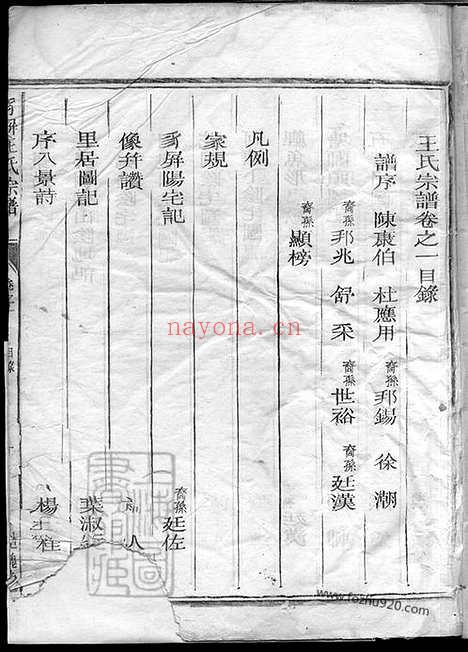 王氏宗譜卷之一目錄
譜序 陳康伯 杜應用 裔孫邦錫 徐潮
裔孫邦兆 舒采 裔孫世裕 裔孫廷漢
裔孫顯榜
凡例
家規
屏陽宅記 裔孫廷佐
像并讚
里居圖記 葉淑
序八景詩 楊
王氏宗譜
目錄
nayona.cn
www.fozhu920.com